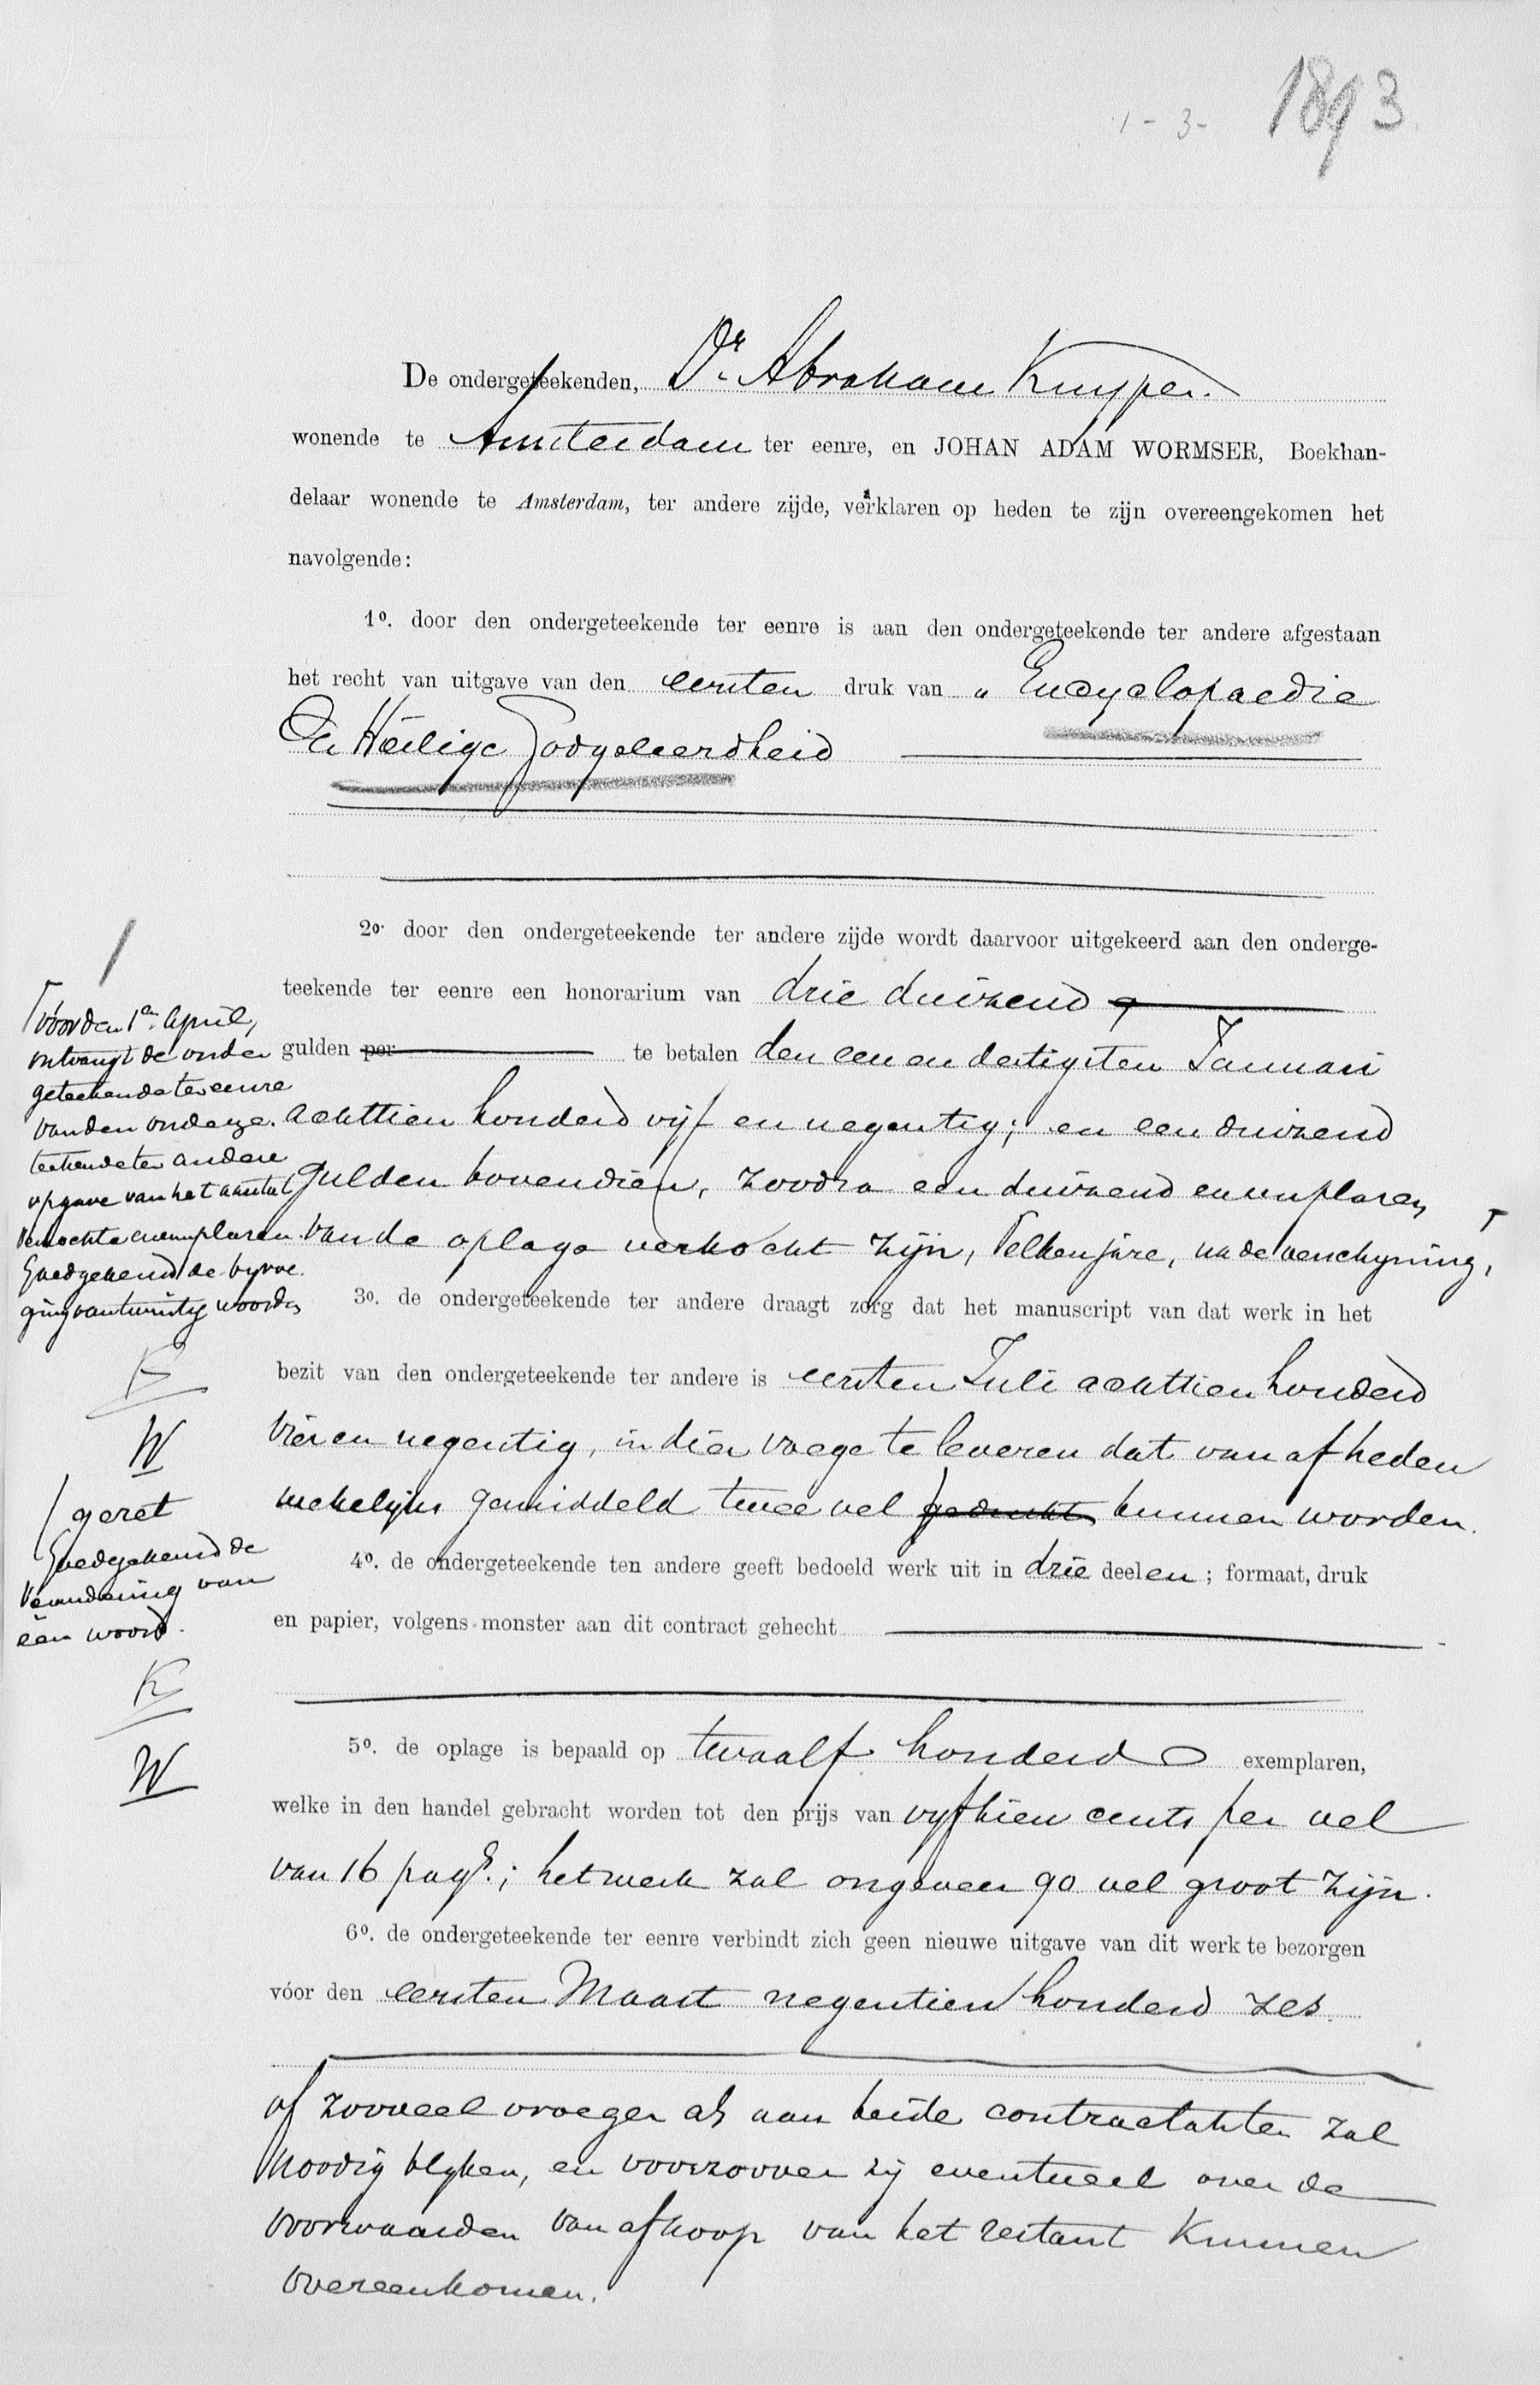 1-3- 1893
De ondergeteekenden, Dr. Abraham Kuyper.
wonende te Amsterdam ter eenre, en JOHAN ADAM WORMSER, Boekhan-
delaar wonende te Amsterdam, ter andere zijde, verklaren op heden te zijn overeengekomen het
navolgende:
1o. door den ondergeteekende ter eenre is aan den ondergeteekende ter andere afgestaan
het recht van uitgave van den eersten druk van „ Encyclopaedie
Der Heilige Godgeleerdheid
2o. door den ondergeteekende ter andere zijde wordt daarvoor uitgekeerd aan den onderge-
teekende ter eenre een honorarium van drie duizend
gulden per te betalen den een en dertigsten Januari
achttien honderd vijf en negentig; en een duizend
gulden bovendien, zoodra een duizend exemplaren
van de oplage verkocht zijn, elken jare, na de verschijning,
Voor den 1en April,
ontvangt de onder
geteekende ter eenre
van den onderge.
teekende ter andere
opgave van het aantal
verkochte exemplaren.
Goedgekeurd de byvoe.
ging van twintig woorden
K
W
3o. de ondergeteekende ter andere draagt zorg dat het manuscript van dat werk in het
bezit van den ondergeteekende ter andere is eersten Juli achttien honderd
vier en negentig, in dier voege te leveren dat van af heden
wekelijks gemiddeld twee vel gedrukt kunnen worden.
gezet
Goedgekeurd de
verandering van
één woord.
K
W
4o. de ondergeteekende ten andere geeft bedoeld werk uit in drie deelen; formaat, druk
en papier, volgens monster aan dit contract gehecht
5o. de oplage is bepaald op twaalf honderd exemplaren,
welke in den handel gebracht worden tot den prijs van vyftien cents per vel
van 16 pagS.; het werk zal ongeveer 90 vel groot zijn.
6o. de ondergeteekende ter eenre verbindt zich geen nieuwe uitgave van dit werk te bezorgen
vóor den eersten Maart negentien honderd zes
of zooveel vroeger als aan beide contractanten zal
noodig blyken, en voorzoover zij eventueel over de
voorwaarden van afkoop van het restant kunnen
overeenkomen.